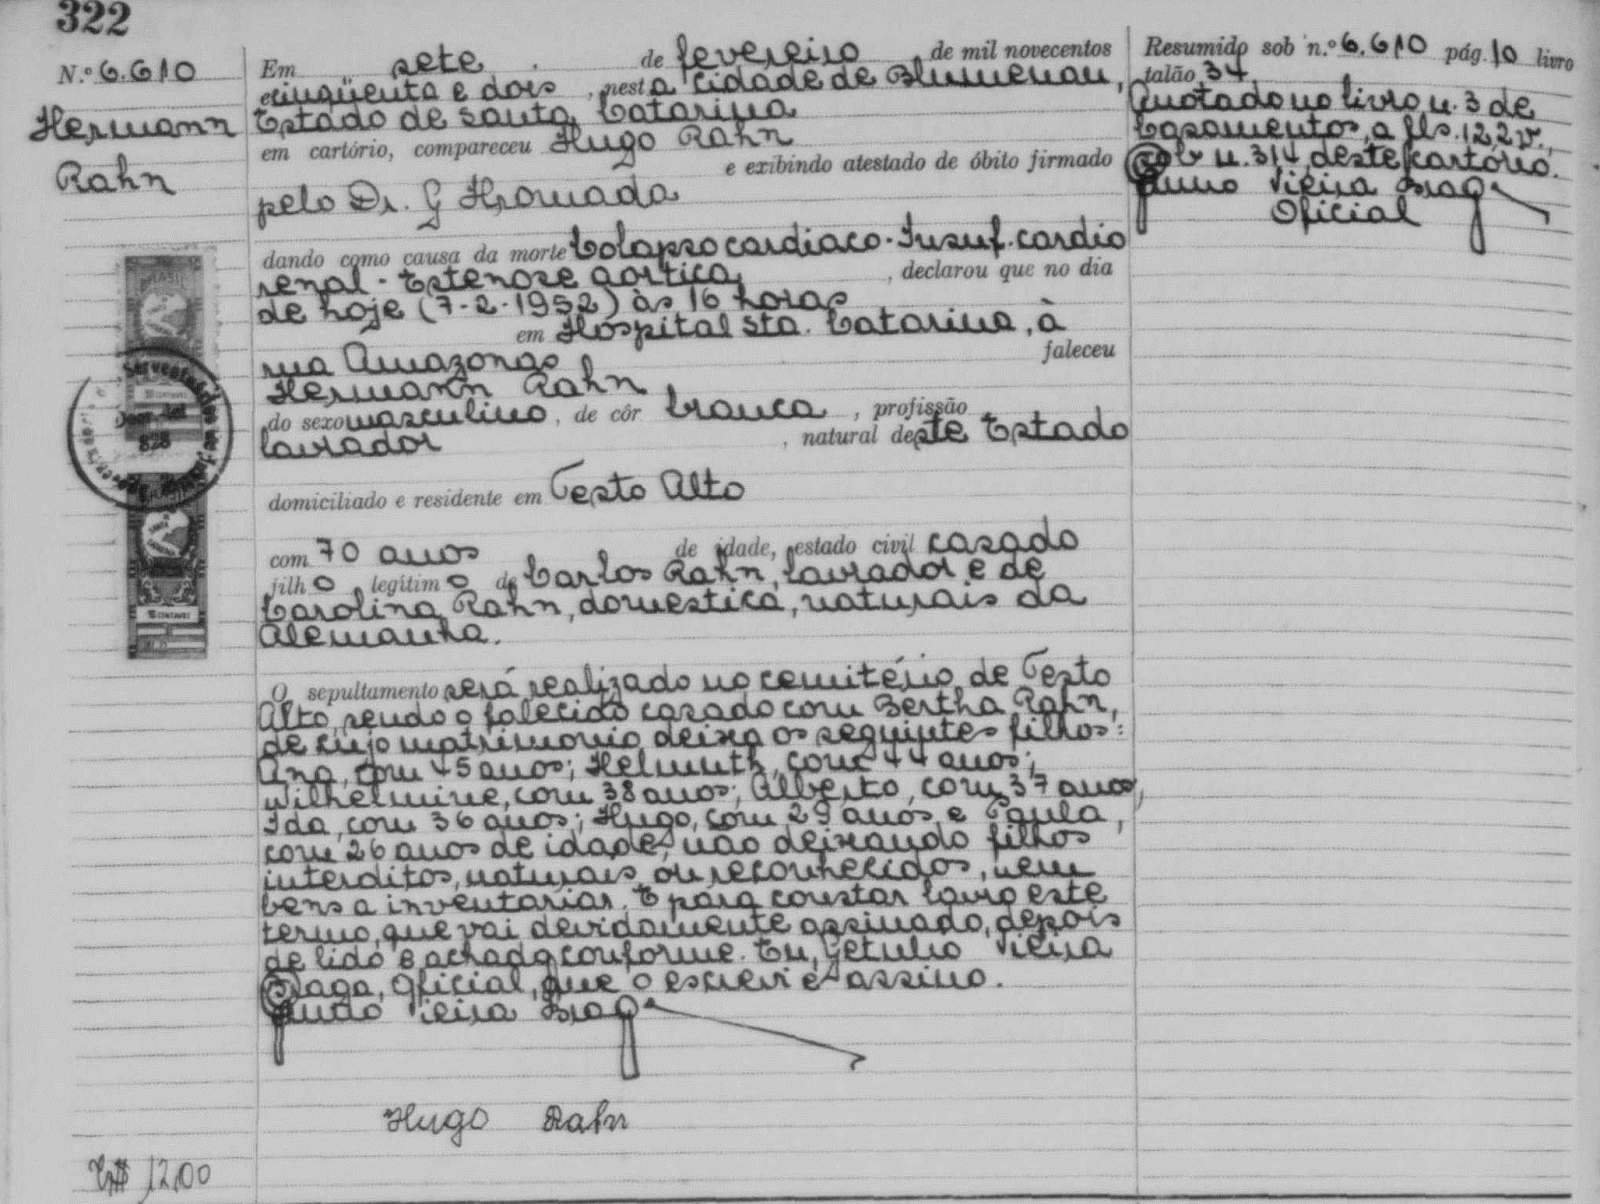 322
N.º 6.610
Hermann
Rahn
Em sete de fevereiro de mil novecentos
e cinqüenta e dois, nesta cidade de Blumenau,
Estado de Santa Catarina
em cartório, compareceu Hugo Rahn
e exibindo atestado de óbito firmado
pelo Dr. G Hromada
dando como causa da morte Colapso cardiaco - Insuf. cardio
renal - Estenose aortica, declarou que no dia
de hoje (7-2-1952) às 16 horas
em Hospital Sta. Catarina, à
rua Amazonas faleceu
Hermann Rahn
do sexo masculino, de côr branca, profissão
lavrador, natural deste Estado
domiciliado e residente em Testo Alto
com 70 anos de idade, estado civil casado
filho legítimo de Carlos Rahn, lavrador e de
Carolina Rahn, domestica, naturais da
Alemanha.
O sepultamento será realizado no cemitério de Testo
Alto, sendo o falecido casado com Bertha Rahn,
de cujo matrimonio deixa os seguintes filhos:
Ana, com 45 anos; Helmuth, com 44 anos;
Wilhelmine, com 38 anos; Alberto, com 37 anos,
Ida, com 36 anos; Hugo, com 29 anos e Paula,
com 26 anos de idade, não deixando filhos
interditos, naturais ou reconhecidos, nem
bens a inventariar. E para constar lavro este
termo, que vai devidamente assinado, depois
de lido e achado conforme. Eu, Getulio Vieira
Braga, Oficial, que o escrevi e assino.
Vieira Braga
Hugo Rahn
Cr$ 12,00
Resumido sob n.º 6.610 pág. 10 livro
talão 34.
Anotado no livro n. 3 de
Casamentos, a fls. 122v.,
sob n. 314, deste cartório.
Vieira Braga
Oficial
BRASIL
Serventuários de Justiça
828